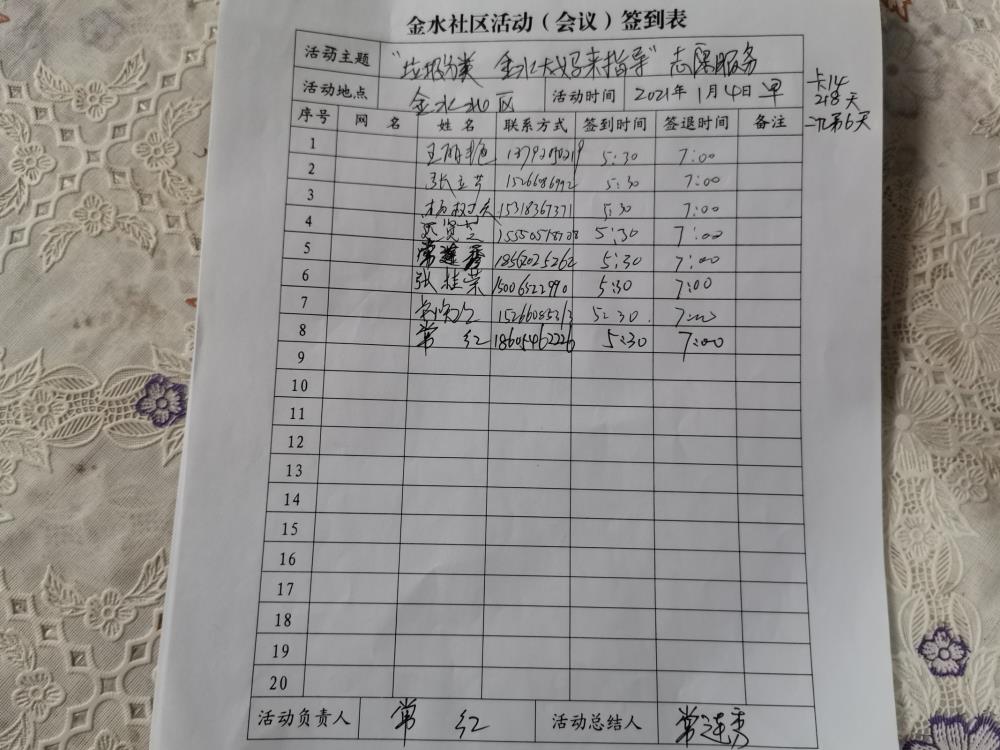 金水社区活动（会议）签到表
活动主题 "垃圾分类 金水大妈来指导"志愿服务
活动地点 金水北区 活动时间 2021年1月4日早
卡14
218天
二九第6天
序号 网 名 姓 名 联系方式 签到时间 签退时间 备注
1 5:30 7:00
2 张立芹 1526686992 5:30 7:00
3 15318367371 5:30 7:00
4 5:30 7:00
5 常莲秀 18562025262 5:30 7:00
6 张桂荣 15006522990 5:30 7:00
7 15266085313 5:30 7:00
8 常 红 18605462226 5:30 7:00
9
10
11
12
13
14
15
16
17
18
19
20
活动负责人 常 红 活动总结人 常连秀